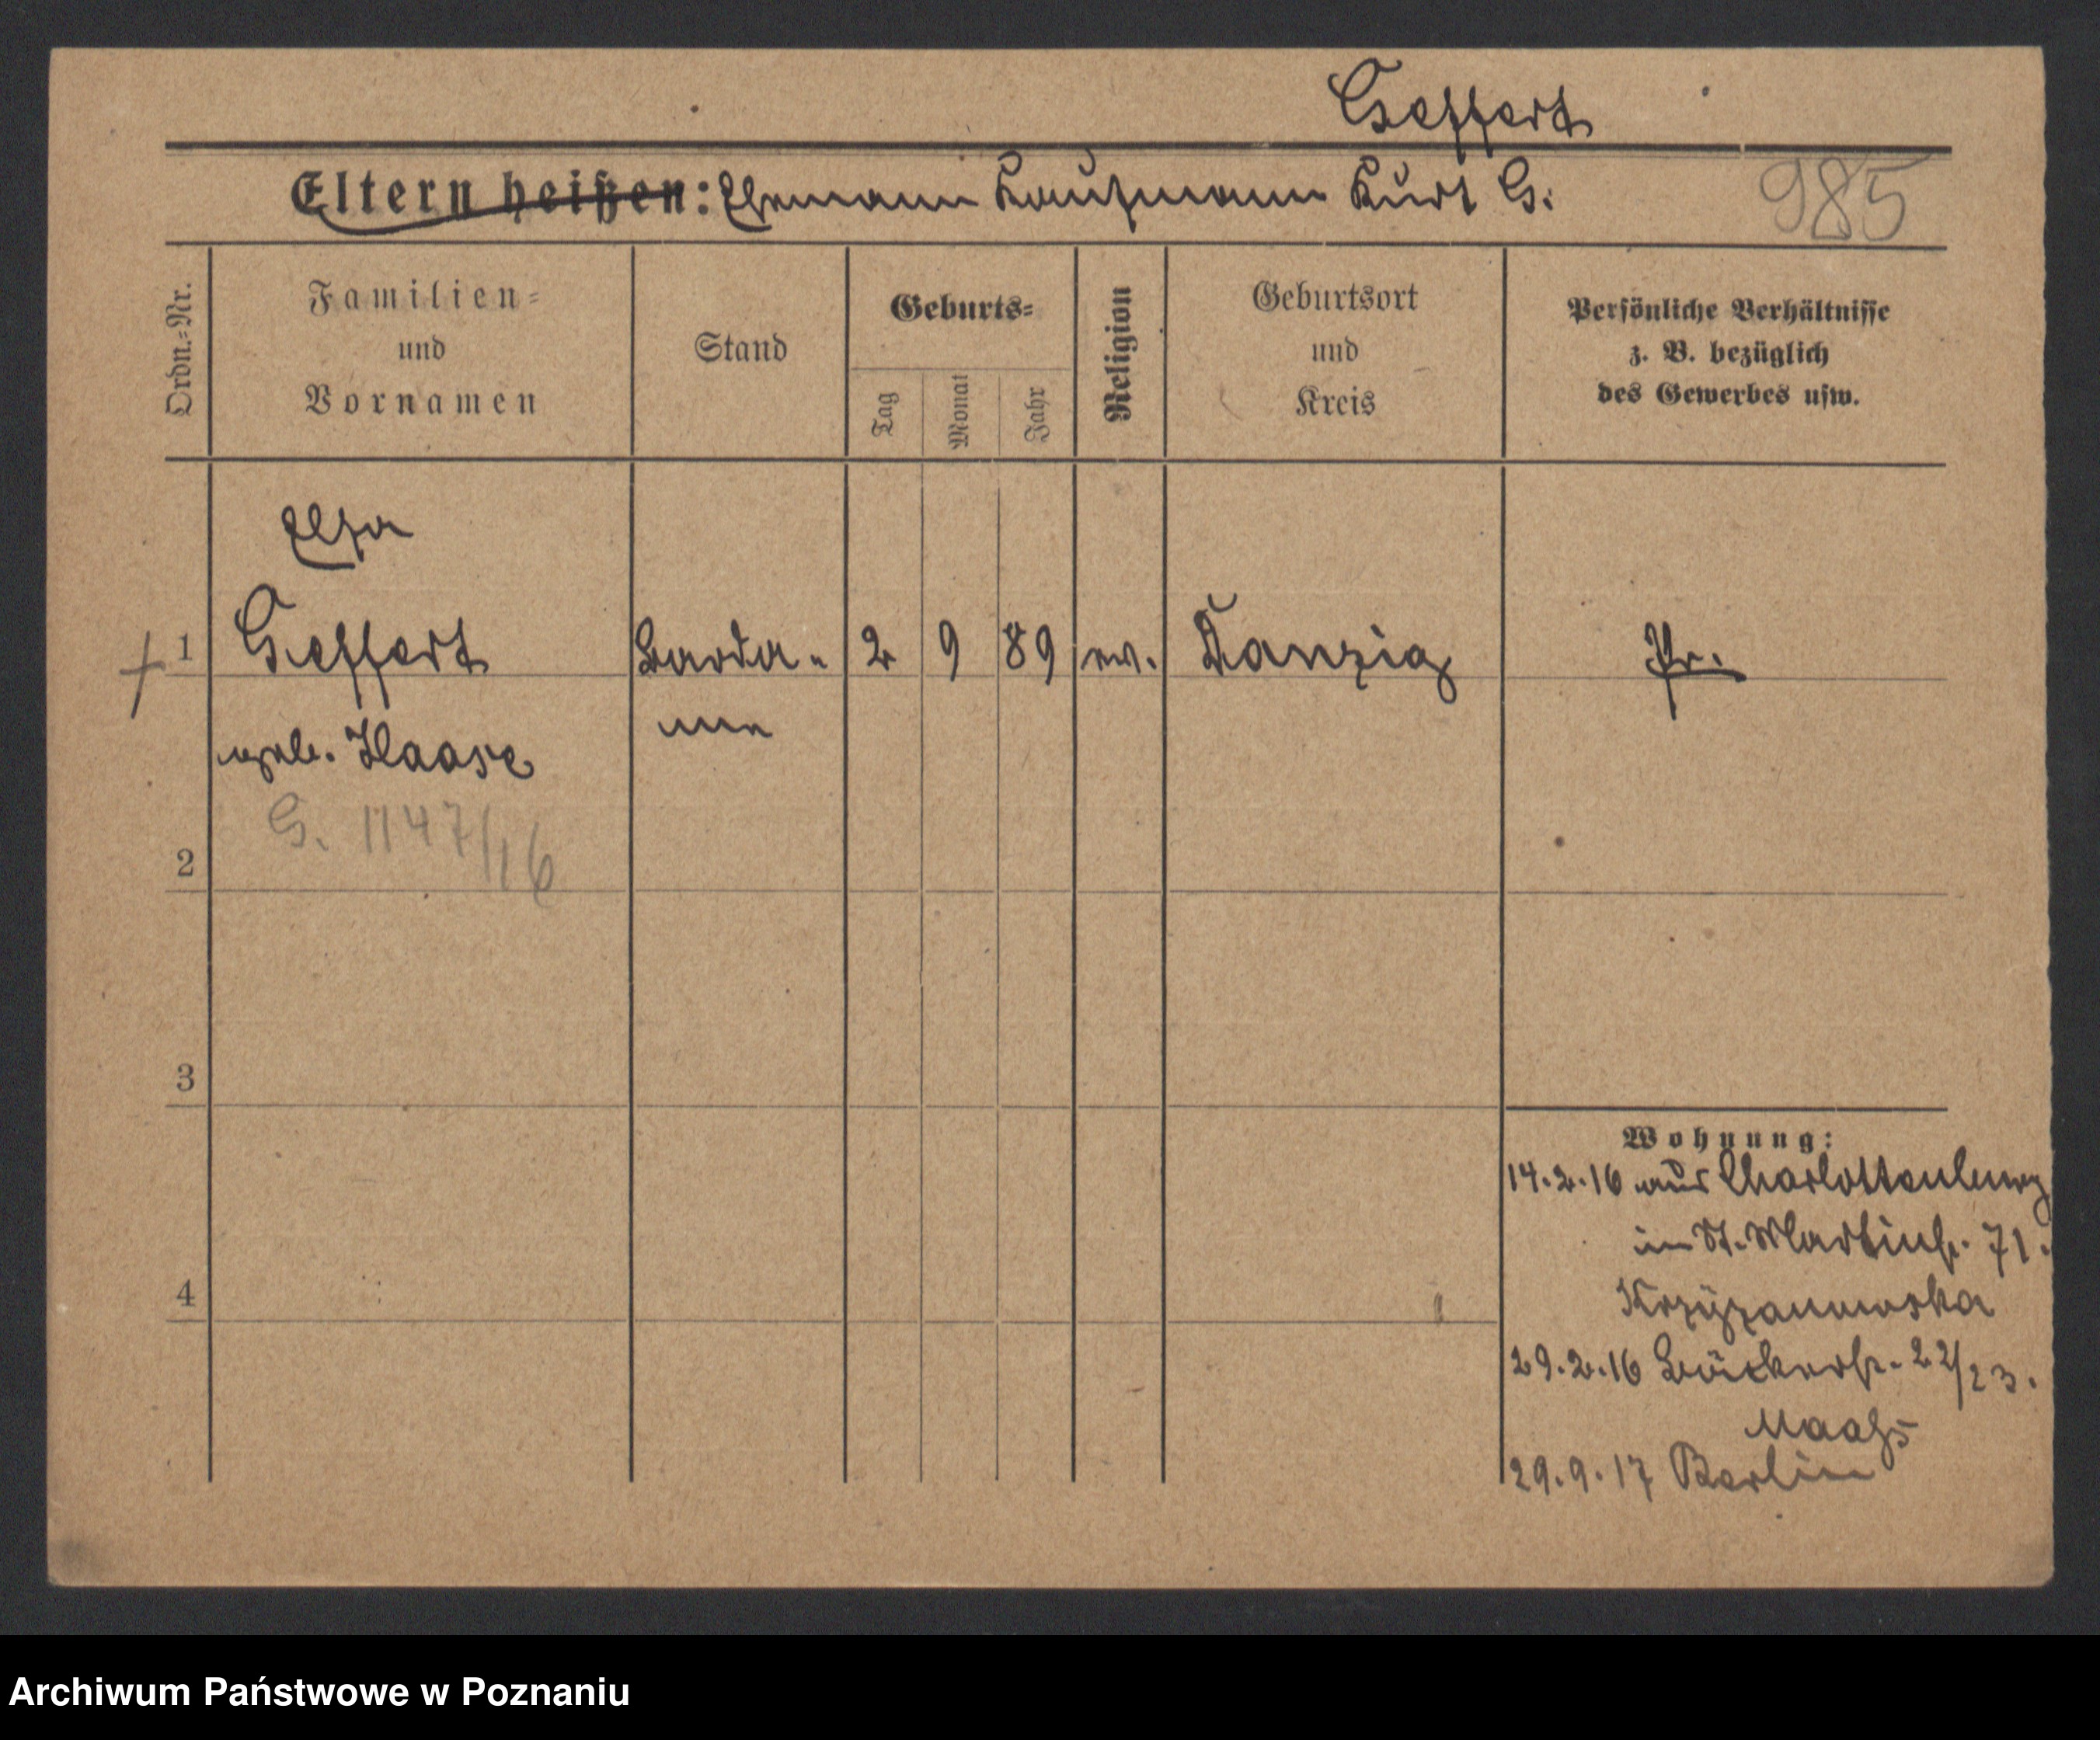 Geffert
Eltern heißen: Ehemann Kaufmann Kurt G.
985
Ordn.-Nr.
Familien-
und
Vornamen
Stand
Geburts-
Tag
Monat
Jahr
Religion
Geburtsort
und
Kreis
Persönliche Verhältnisse
z. B. bezüglich
des Gewerbes usw.
Elsa
1 Geffert 2 9 89 ev. Danzig Pr.
geb. Haase
G. 1147/16
2
3
4
Wohnung:
14.2.16 aus Charlottenburg
in St. Martinstr. 71.
Krzyżanowska
29.2.16 Bäckerstr. 22/23.
Maaß
29.9.17 Berlin
Archiwum Państwowe w Poznaniu